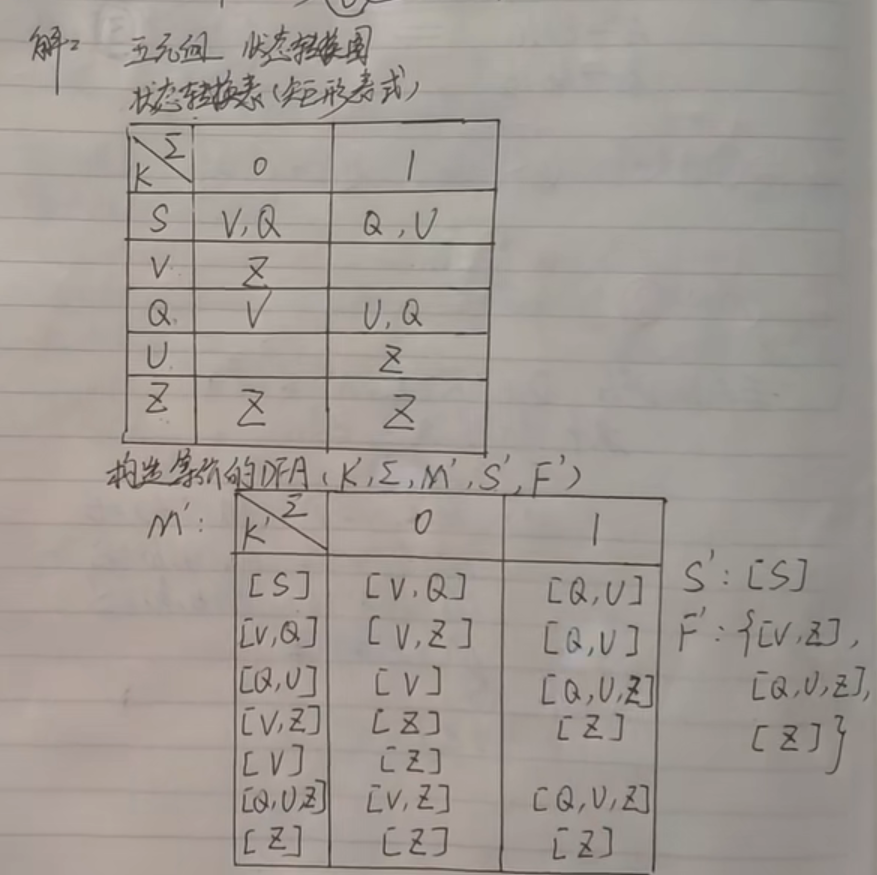 解: 五元组 状态转换图
状态转换表(矩形表式)
K Σ 0 1
S V,Q Q,U
V Z
Q V U,Q
U Z
Z Z Z
构造等价的DFA(K',Σ,M',S',F')
M':
K' Σ 0 1
[S] [V,Q] [Q,U]
[V,Q] [V,Z] [Q,U]
[Q,U] [V] [Q,U,Z]
[V,Z] [Z] [Z]
[V] [Z]
[Q,U,Z] [V,Z] [Q,U,Z]
[Z] [Z] [Z]
S': [S]
F': {[V,Z],
[Q,U,Z],
[Z]}